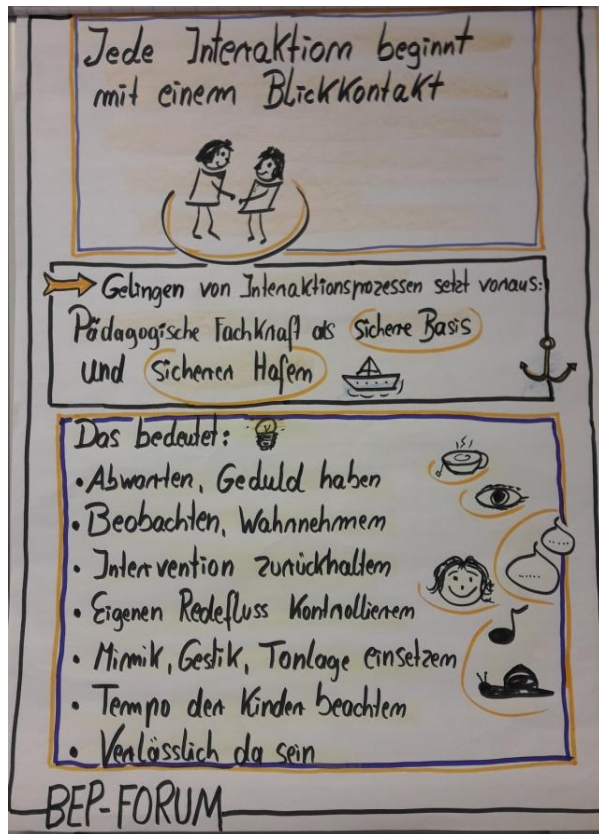 Jede Interaktion beginnt
mit einem Blickkontakt
Gelingen von Interaktionsprozessen setzt voraus:
Pädagogische Fachkraft als Sichere Basis
und Sicheren Hafen
Das bedeutet:
• Abwarten, Geduld haben
• Beobachten, Wahrnehmen
• Intervention zurückhalten
• Eigenen Redefluss Kontrollieren
• Mimik, Gestik, Tonlage einsetzen
• Tempo der Kinder beachten
• Verlässlich da sein
BEP-FORUM